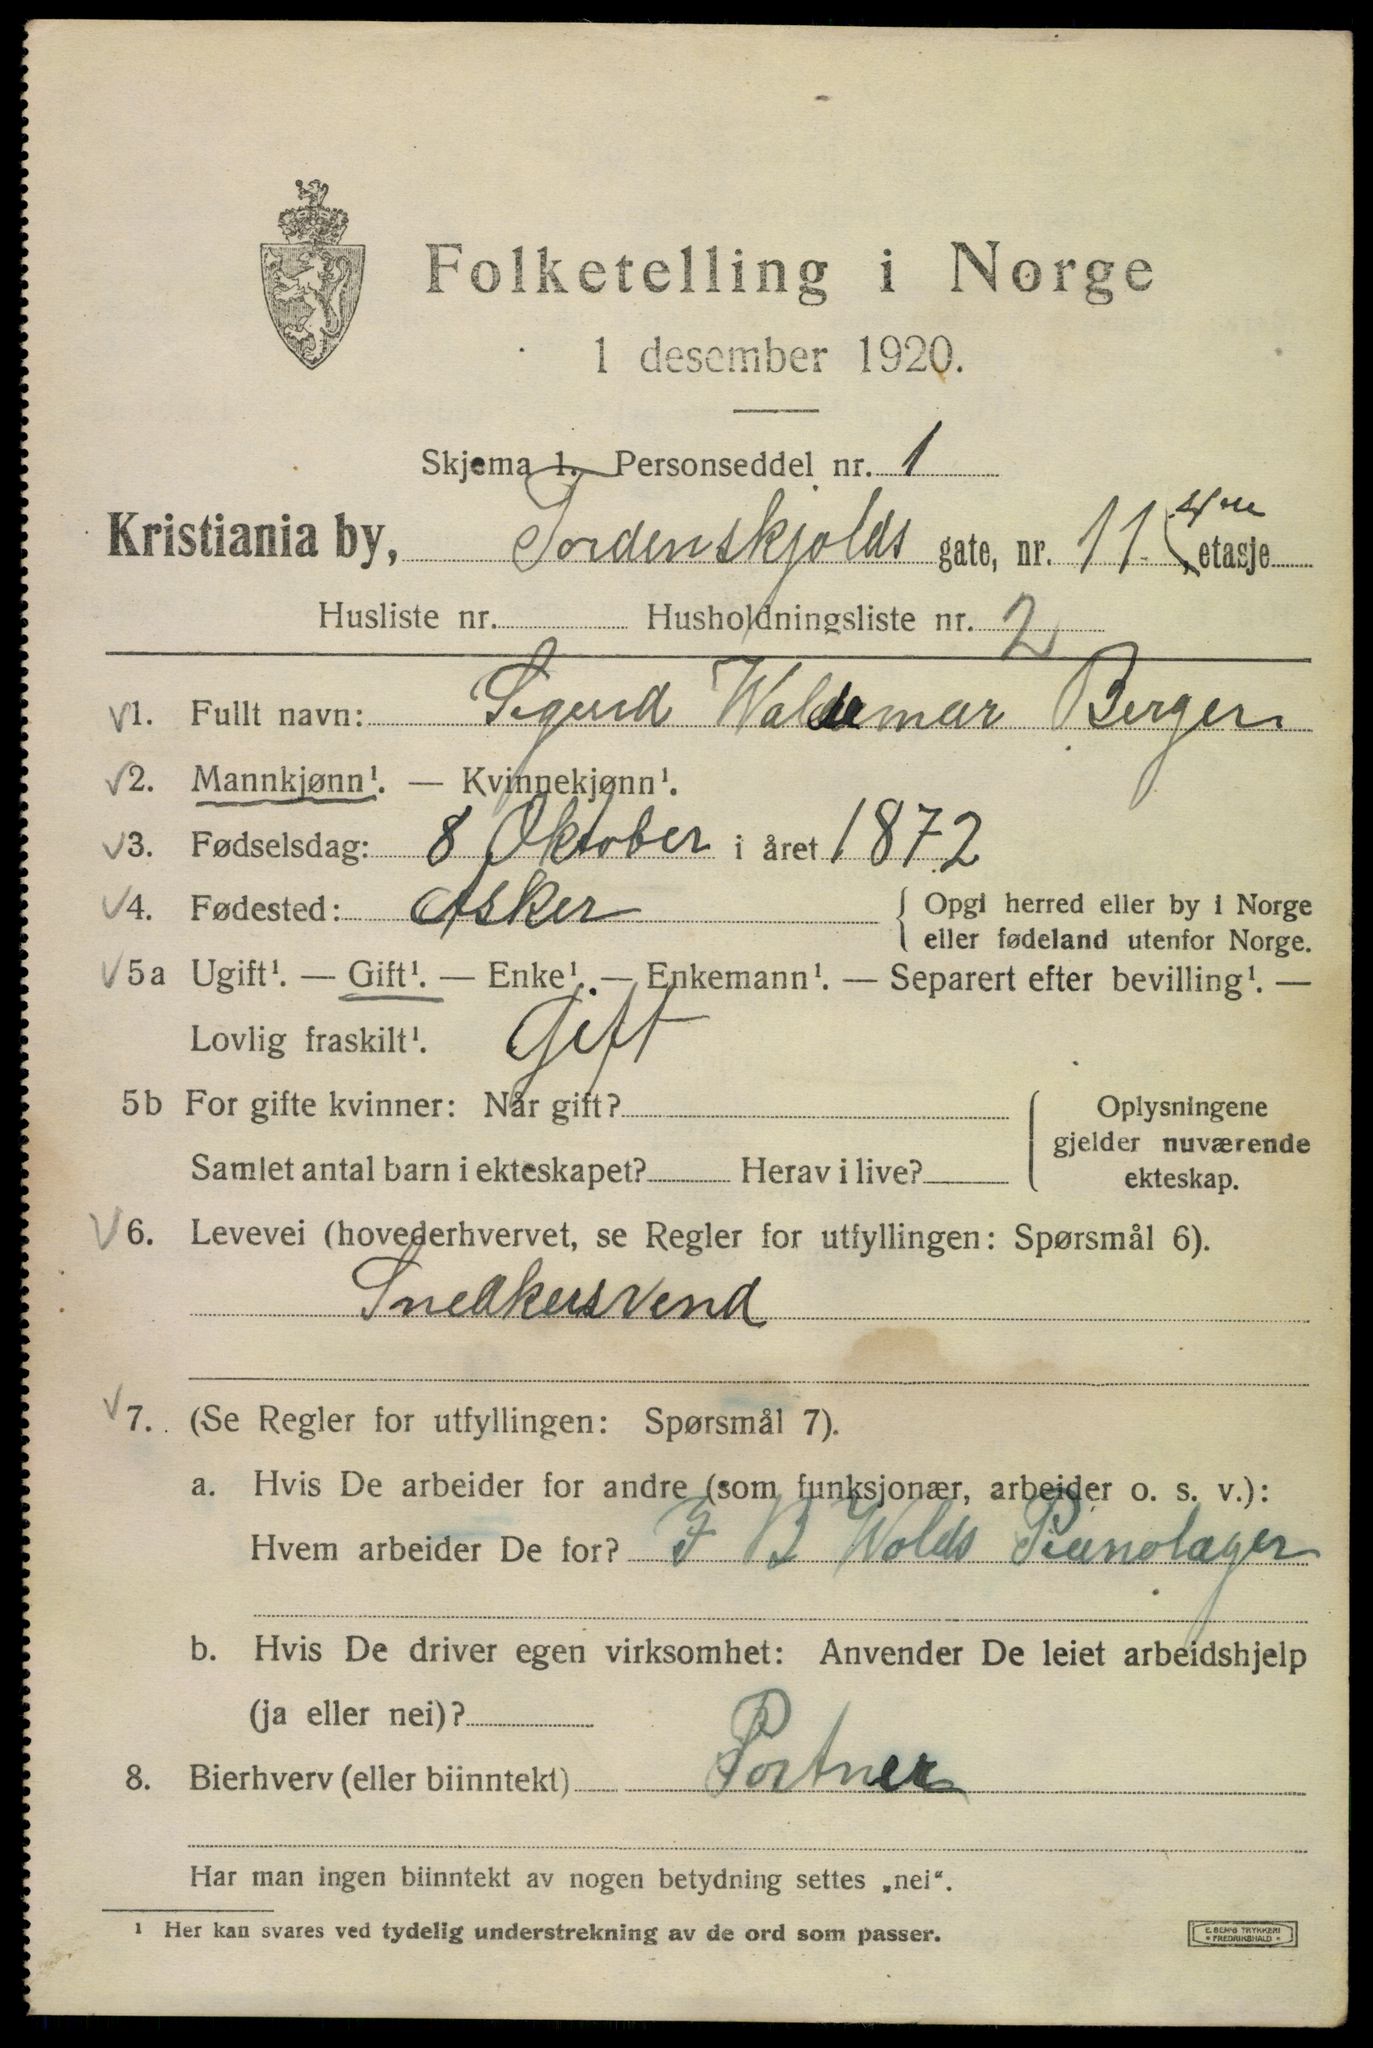 Folketelling i Norge
1 desember 1920.
Skjema 1. Personseddel nr. 1
Kristiania by, Tordenskjolds gate, nr. 11, 4de etasje
Husliste nr. Husholdningsliste nr. 2
1. Fullt navn: Sigurd Waldemar Berger
2. Mannkjønn¹. — Kvinnekjønn¹.
3. Fødselsdag: 8 Oktober i året 1872
4. Fødested: Asker { Opgi herred eller by i Norge
eller fødeland utenfor Norge.
5a Ugift¹. — Gift¹. — Enke¹. — Enkemann¹. — Separert efter bevilling¹. —
Lovlig fraskilt¹. Gift
5b For gifte kvinner: Når gift? { Oplysningene
gjelder nuværende
Samlet antal barn i ekteskapet? Herav i live? ekteskap.
6. Levevei (hovederhvervet, se Regler for utfyllingen: Spørsmål 6).
Snedkersvend
7. (Se Regler for utfyllingen: Spørsmål 7).
a. Hvis De arbeider for andre (som funksjonær, arbeider o. s. v.):
Hvem arbeider De for? F B Wolds Pianolager
b. Hvis De driver egen virksomhet: Anvender De leiet arbeidshjelp
(ja eller nei)?
8. Bierhverv (eller biinntekt) Portner
Har man ingen biinntekt av nogen betydning settes „nei“.
¹ Her kan svares ved tydelig understrekning av de ord som passer.
E. SEM'S TRYKKERI
FREDRIKSHALD